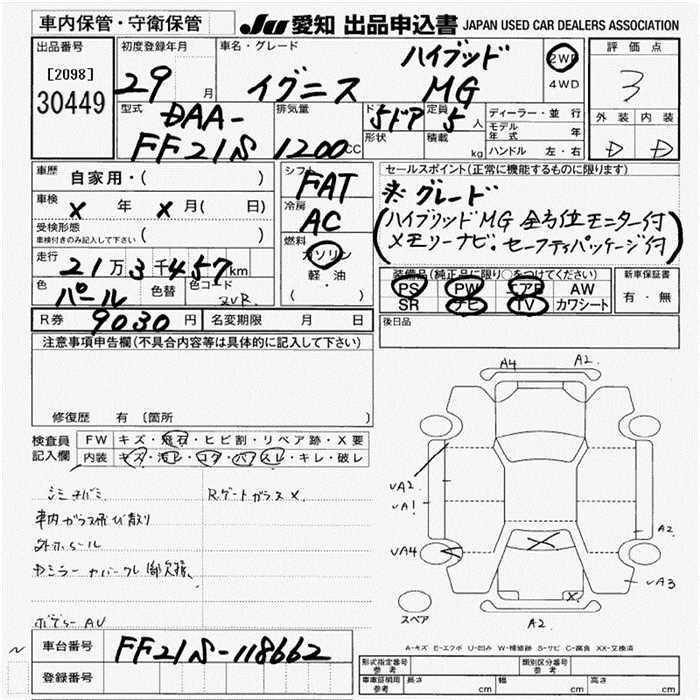 車内保管・守衛保管
JU 愛知 出品申込書 JAPAN USED CAR DEALERS ASSOCIATION
出品番号
[2098]
30449
初度登録年月
29 月
車名・グレード
ハイブリッド
イグニス MG
2WD
4WD
評価点
3
外装 内装
D D
型式
DAA-
FF21S
排気量
1200 CC
ドア
5ドア
形状
定員
5 人
積載
kg
ディーラー・並行
モデル年式 年
ハンドル 左・右
車歴
自家用・( )
車検
X 年 X 月( 日)
受検形態
車検付きのみ記入して下さい ( )
走行
21万3千457km
色
パール
色替
色コード
ZVR
R券 9030 円
名変期限 月 日
シフト
FAT
冷房
AC
燃料
ガソリン
軽・油
( ・ )
セールスポイント(正常に機能するものに限ります)
※グレード
(ハイブリッドMG 全方位モニター付
メモリーナビ・セーフティパッケージ付)
装備品(純正品に限り○をつけてください)
PS PW エアB AW
SR ナビ TV カワシート
新車保証書
有・無
後日品
注意事項申告欄(不具合内容等は具体的に記入して下さい)
修復歴 有 〔箇所 〕
検査員
記入欄
FW キズ・飛石・ヒビ割・リペア跡・X要
内装 キズ・汚レ・コゲ・ハゲ・スレ・キレ・破レ
Rゲートガラス X
車内ガラス飛び散り
A4 A2
A2
A!
A2
A4
A3
X
X
A2
スペア
A-キズ E-エクボ U-凹み W-補修跡 S-サビ C-腐食 XX-交換済
車台番号 FF21S-118662
登録番号
形式指定番号
参考
類別区分番号
参考
車庫証明用
参考
長さ cm 幅 cm 高さ cm